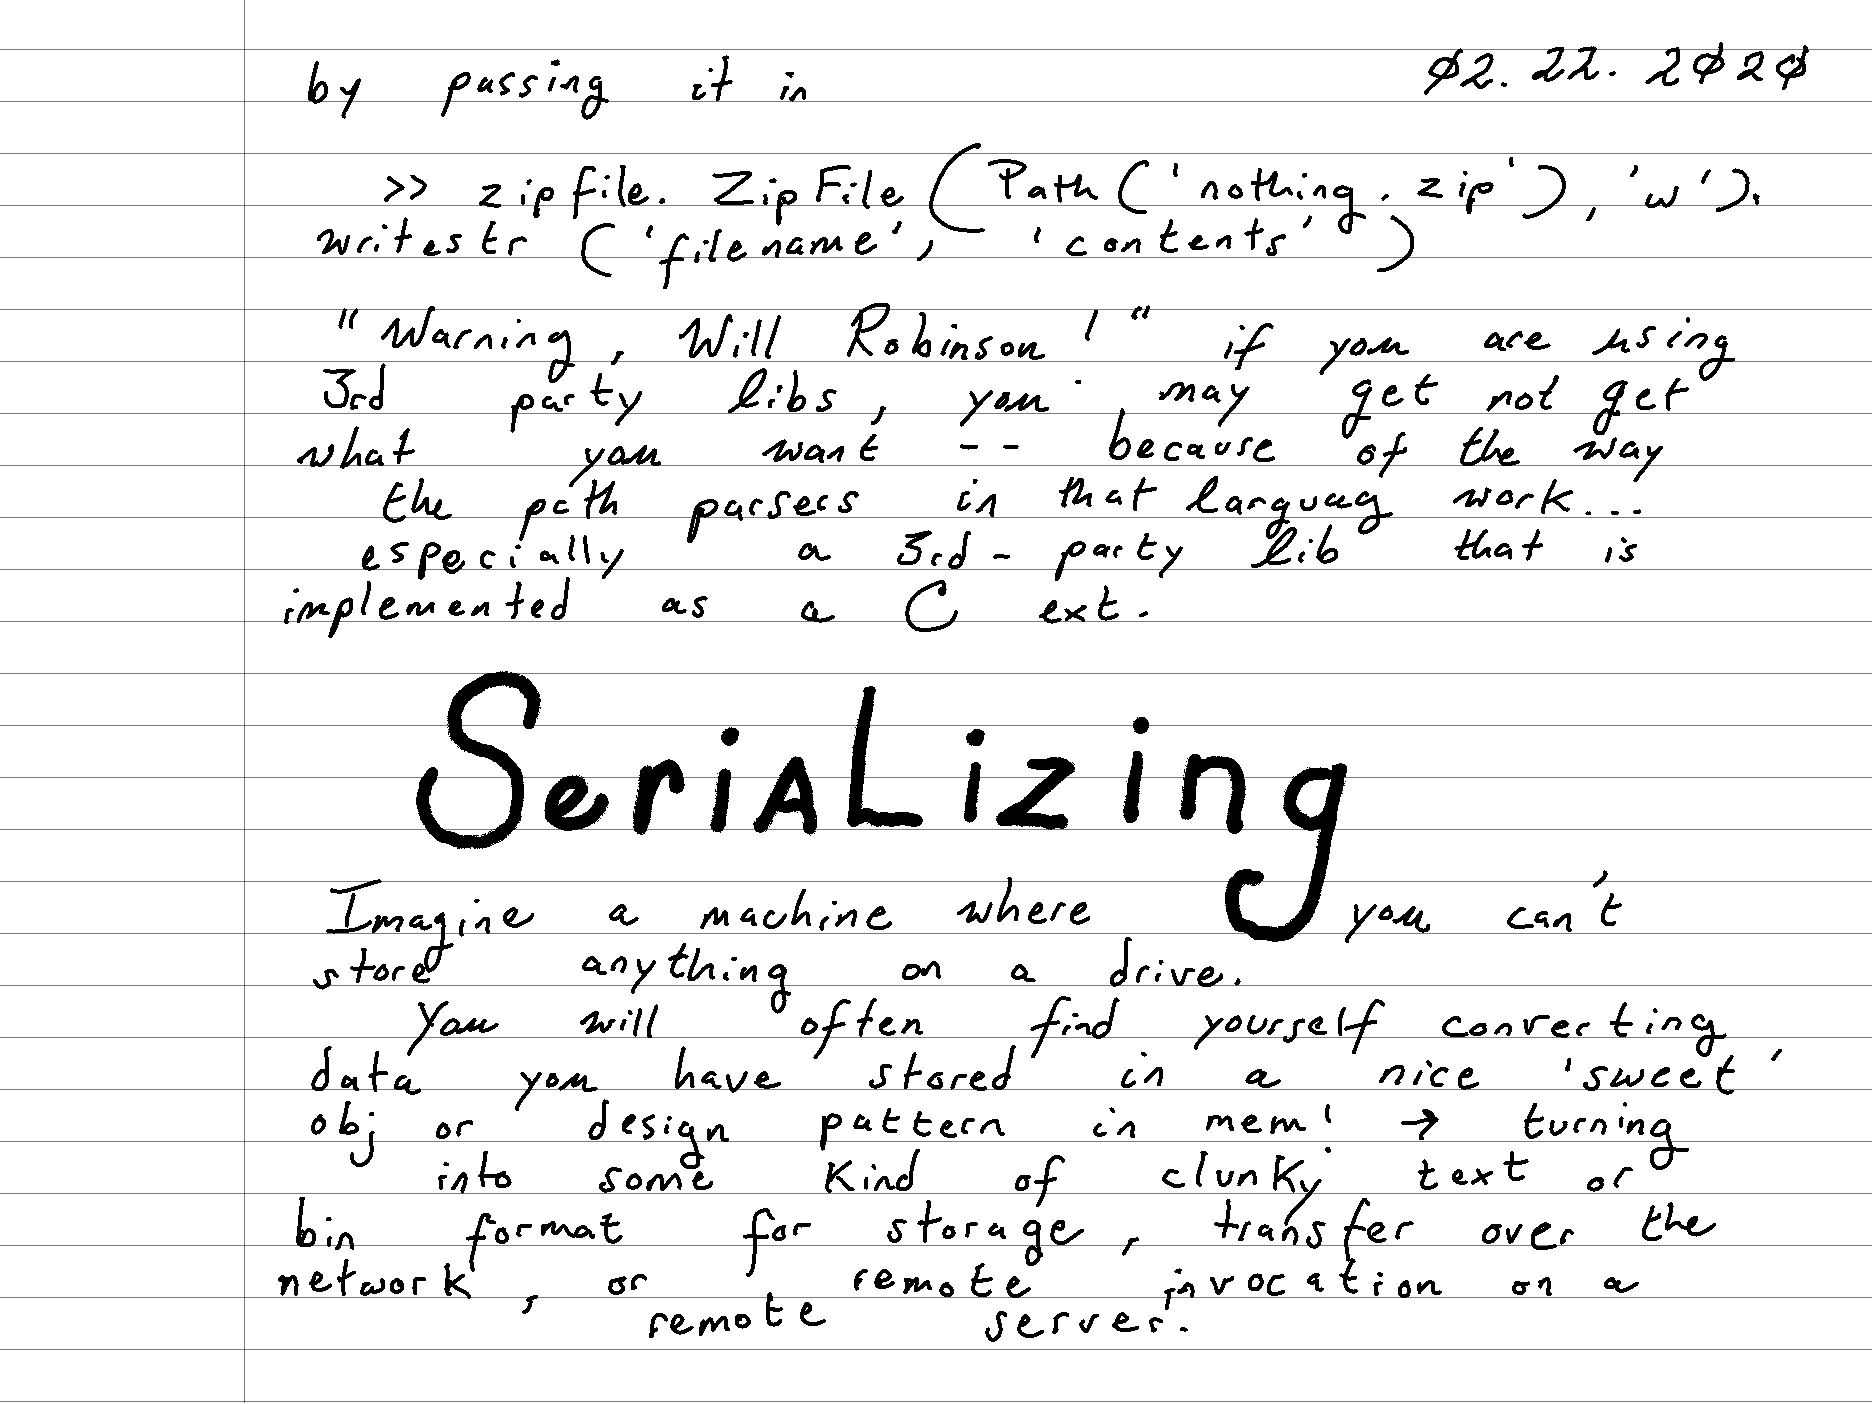 by passing it in
02.22.2020
>> zipfile.ZipFile(Path('nothing.zip'), 'w').
writestr('filename', 'contents')
"Warning, Will Robinson!" if you are using
3rd party libs, you may get not get
what you want -- because of the way
the path parsers in that languag work...
especially a 3rd-party lib that is
implemented as a C ext.
SeriaLizing
Imagine a machine where you can't
store anything on a drive.
You will often find yourself converting
data you have stored in a nice 'sweet'
obj or design pattern in mem! → turning
into some kind of clunky text or
bin format for storage, transfer over the
network, or remote invocation on a
remote server.